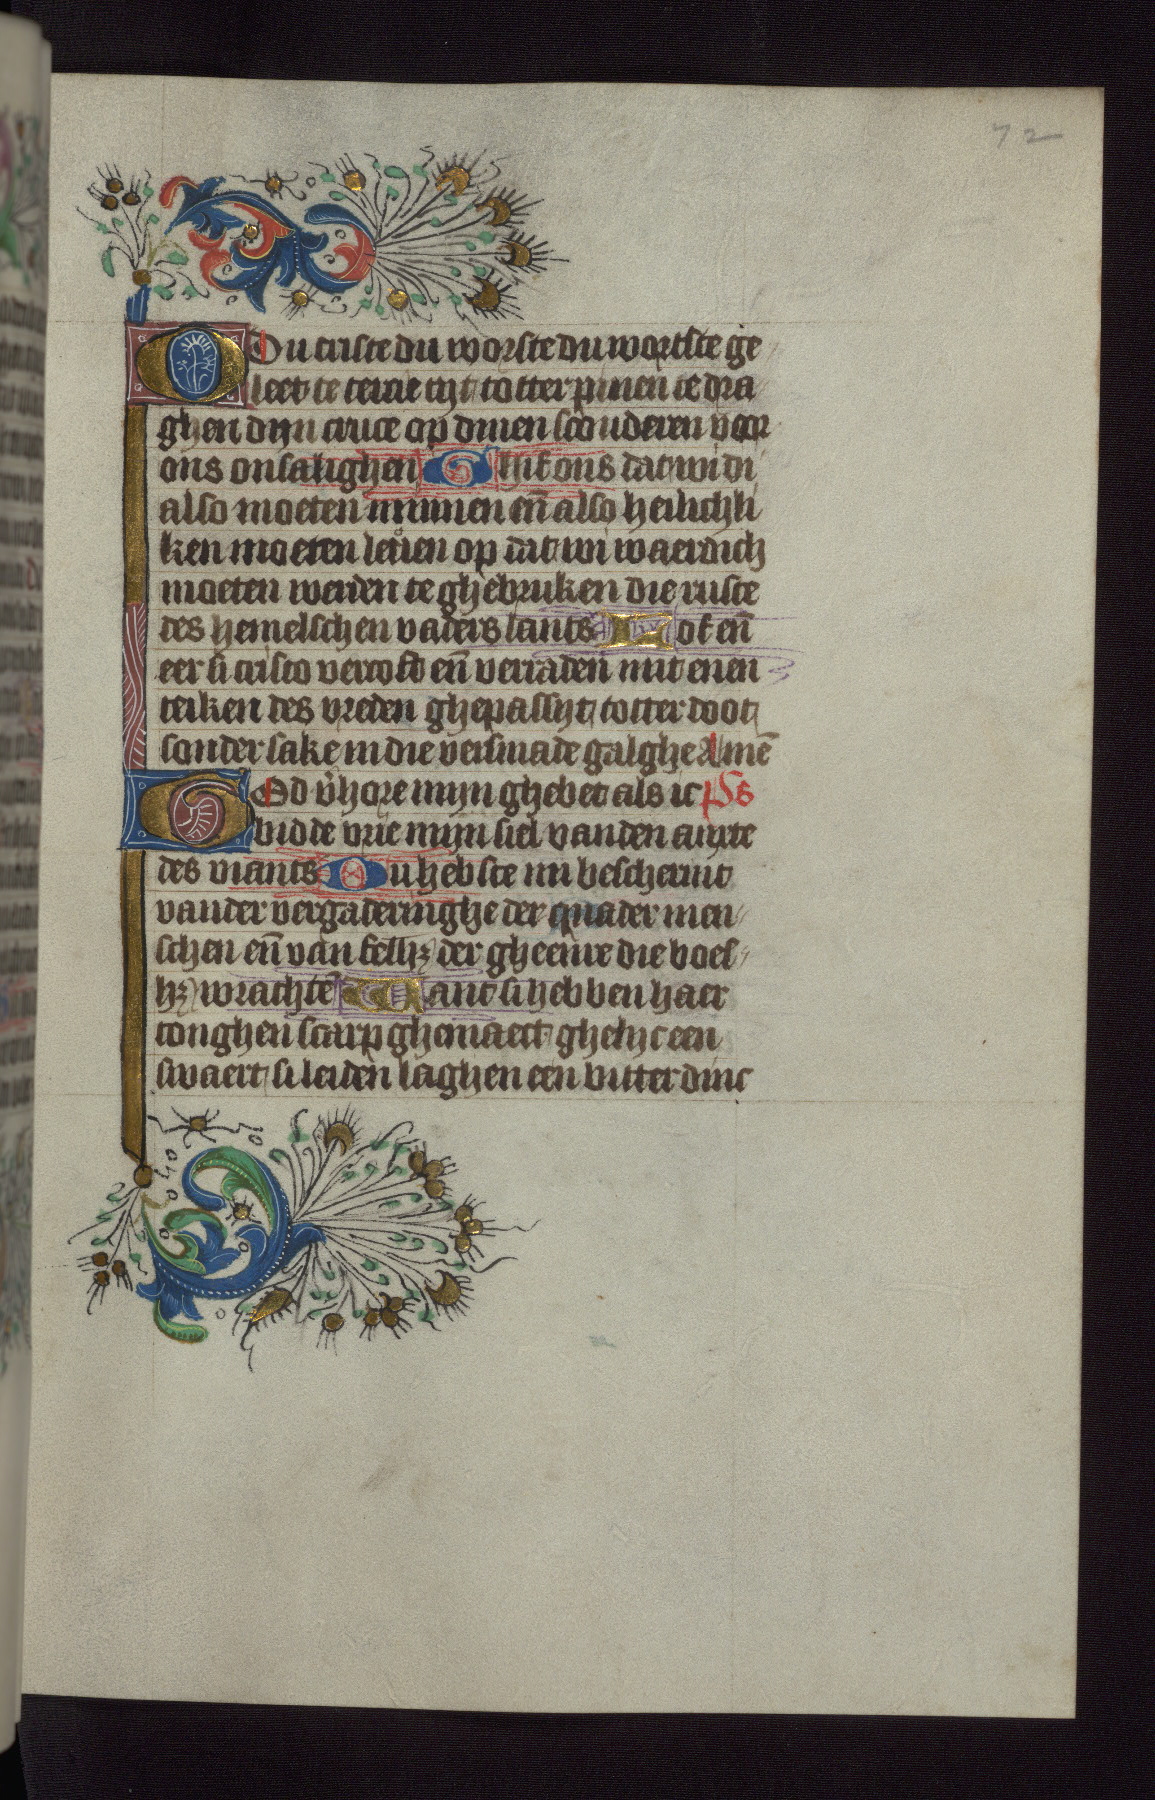 72
Du criste du worste du wortste ge
leet te tercie tijt totter pinen te dra
ghen dijn cruce op dinen scouderen voor
ons onsalighen Ghif ons dat wi di
also moeten minnen en̄ also heilichli
ken moeten leuen op dat wi waerdich
moeten werden te ghebruken die ruste
des hemelschen vaders lants Lof en̄
eer si cristo vercoft en̄ verraden mit enen
teiken des vreden ghepassijt totter doot
sonder sake in die versmade galghe Amē
God v̄hore mijn ghebet als ic ps
bidde vrie mijn siel vanden anxte
des viants Du hebste mi beschermt
vander vergaderinghe der quader men
schen en̄ van der gheenre die boes
wrachtē Want si hebben haer
tonghen scarp ghemaect ghelijc een
swaert si leiden laghen een bitter dinc